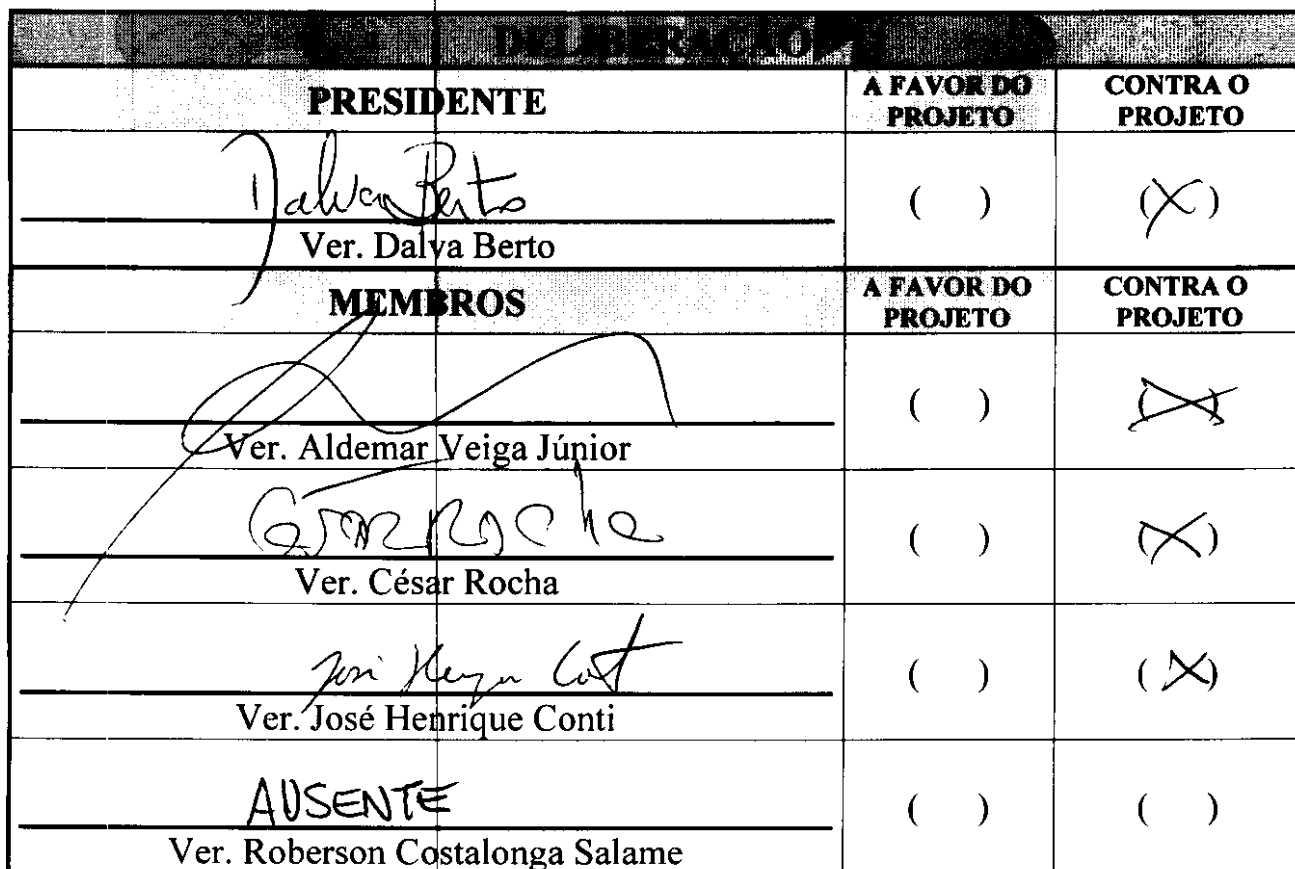 DELIBERAÇÃO
PRESIDENTE A FAVOR DO PROJETO CONTRA O PROJETO
Dalva Berto ( ) (X)
Ver. Dalva Berto
MEMBROS A FAVOR DO PROJETO CONTRA O PROJETO
( ) (X)
Ver. Aldemar Veiga Júnior
César Rocha ( ) (X)
Ver. César Rocha
José Henrique Conti ( ) (X)
Ver. José Henrique Conti
AUSENTE ( ) ( )
Ver. Roberson Costalonga Salame